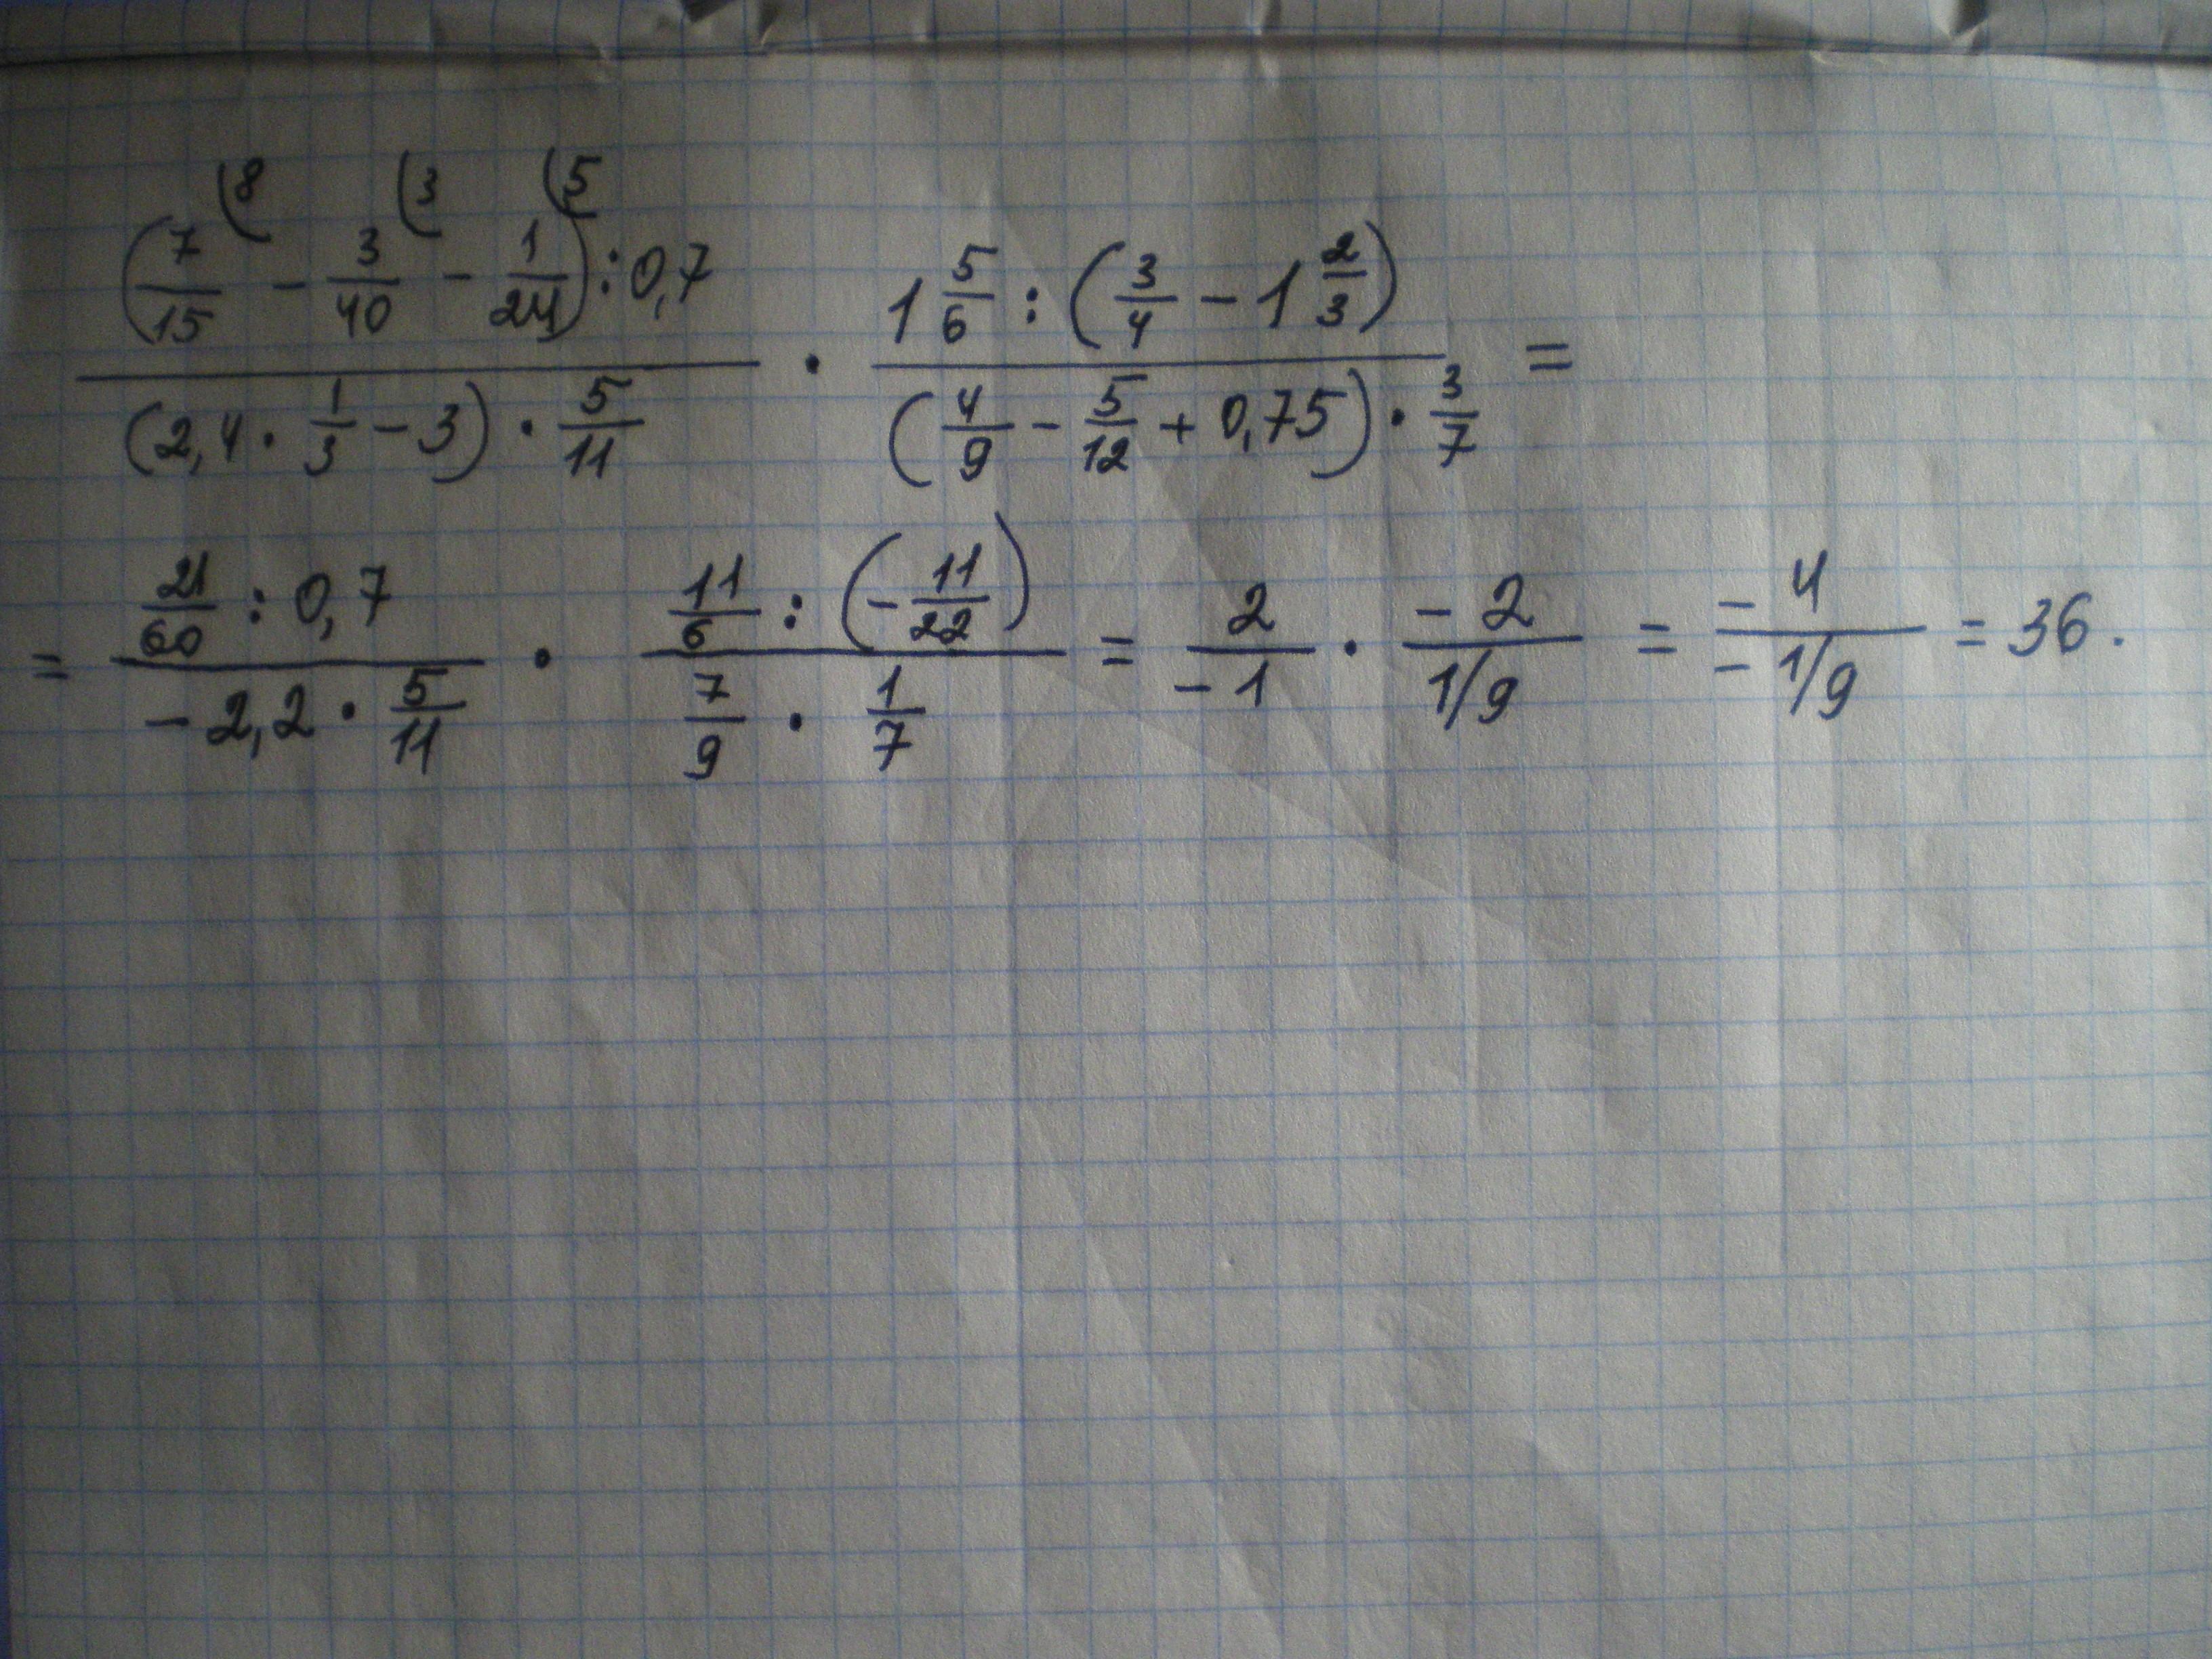 ((7/15)^(8 - (3/40)^(3 - (1/24)^(5) : 0,7 / (2,4 · 1/3 - 3) · 5/11 · 1 5/6 : (3/4 - 1 2/3) / (4/9 - 5/12 + 0,75) · 3/7 =
= 21/60 : 0,7 / -2,2 · 5/11 · 11/6 : (- 11/22) / 7/9 · 1/7 = 2/-1 · -2/1/9 = -4/-1/9 = 36.